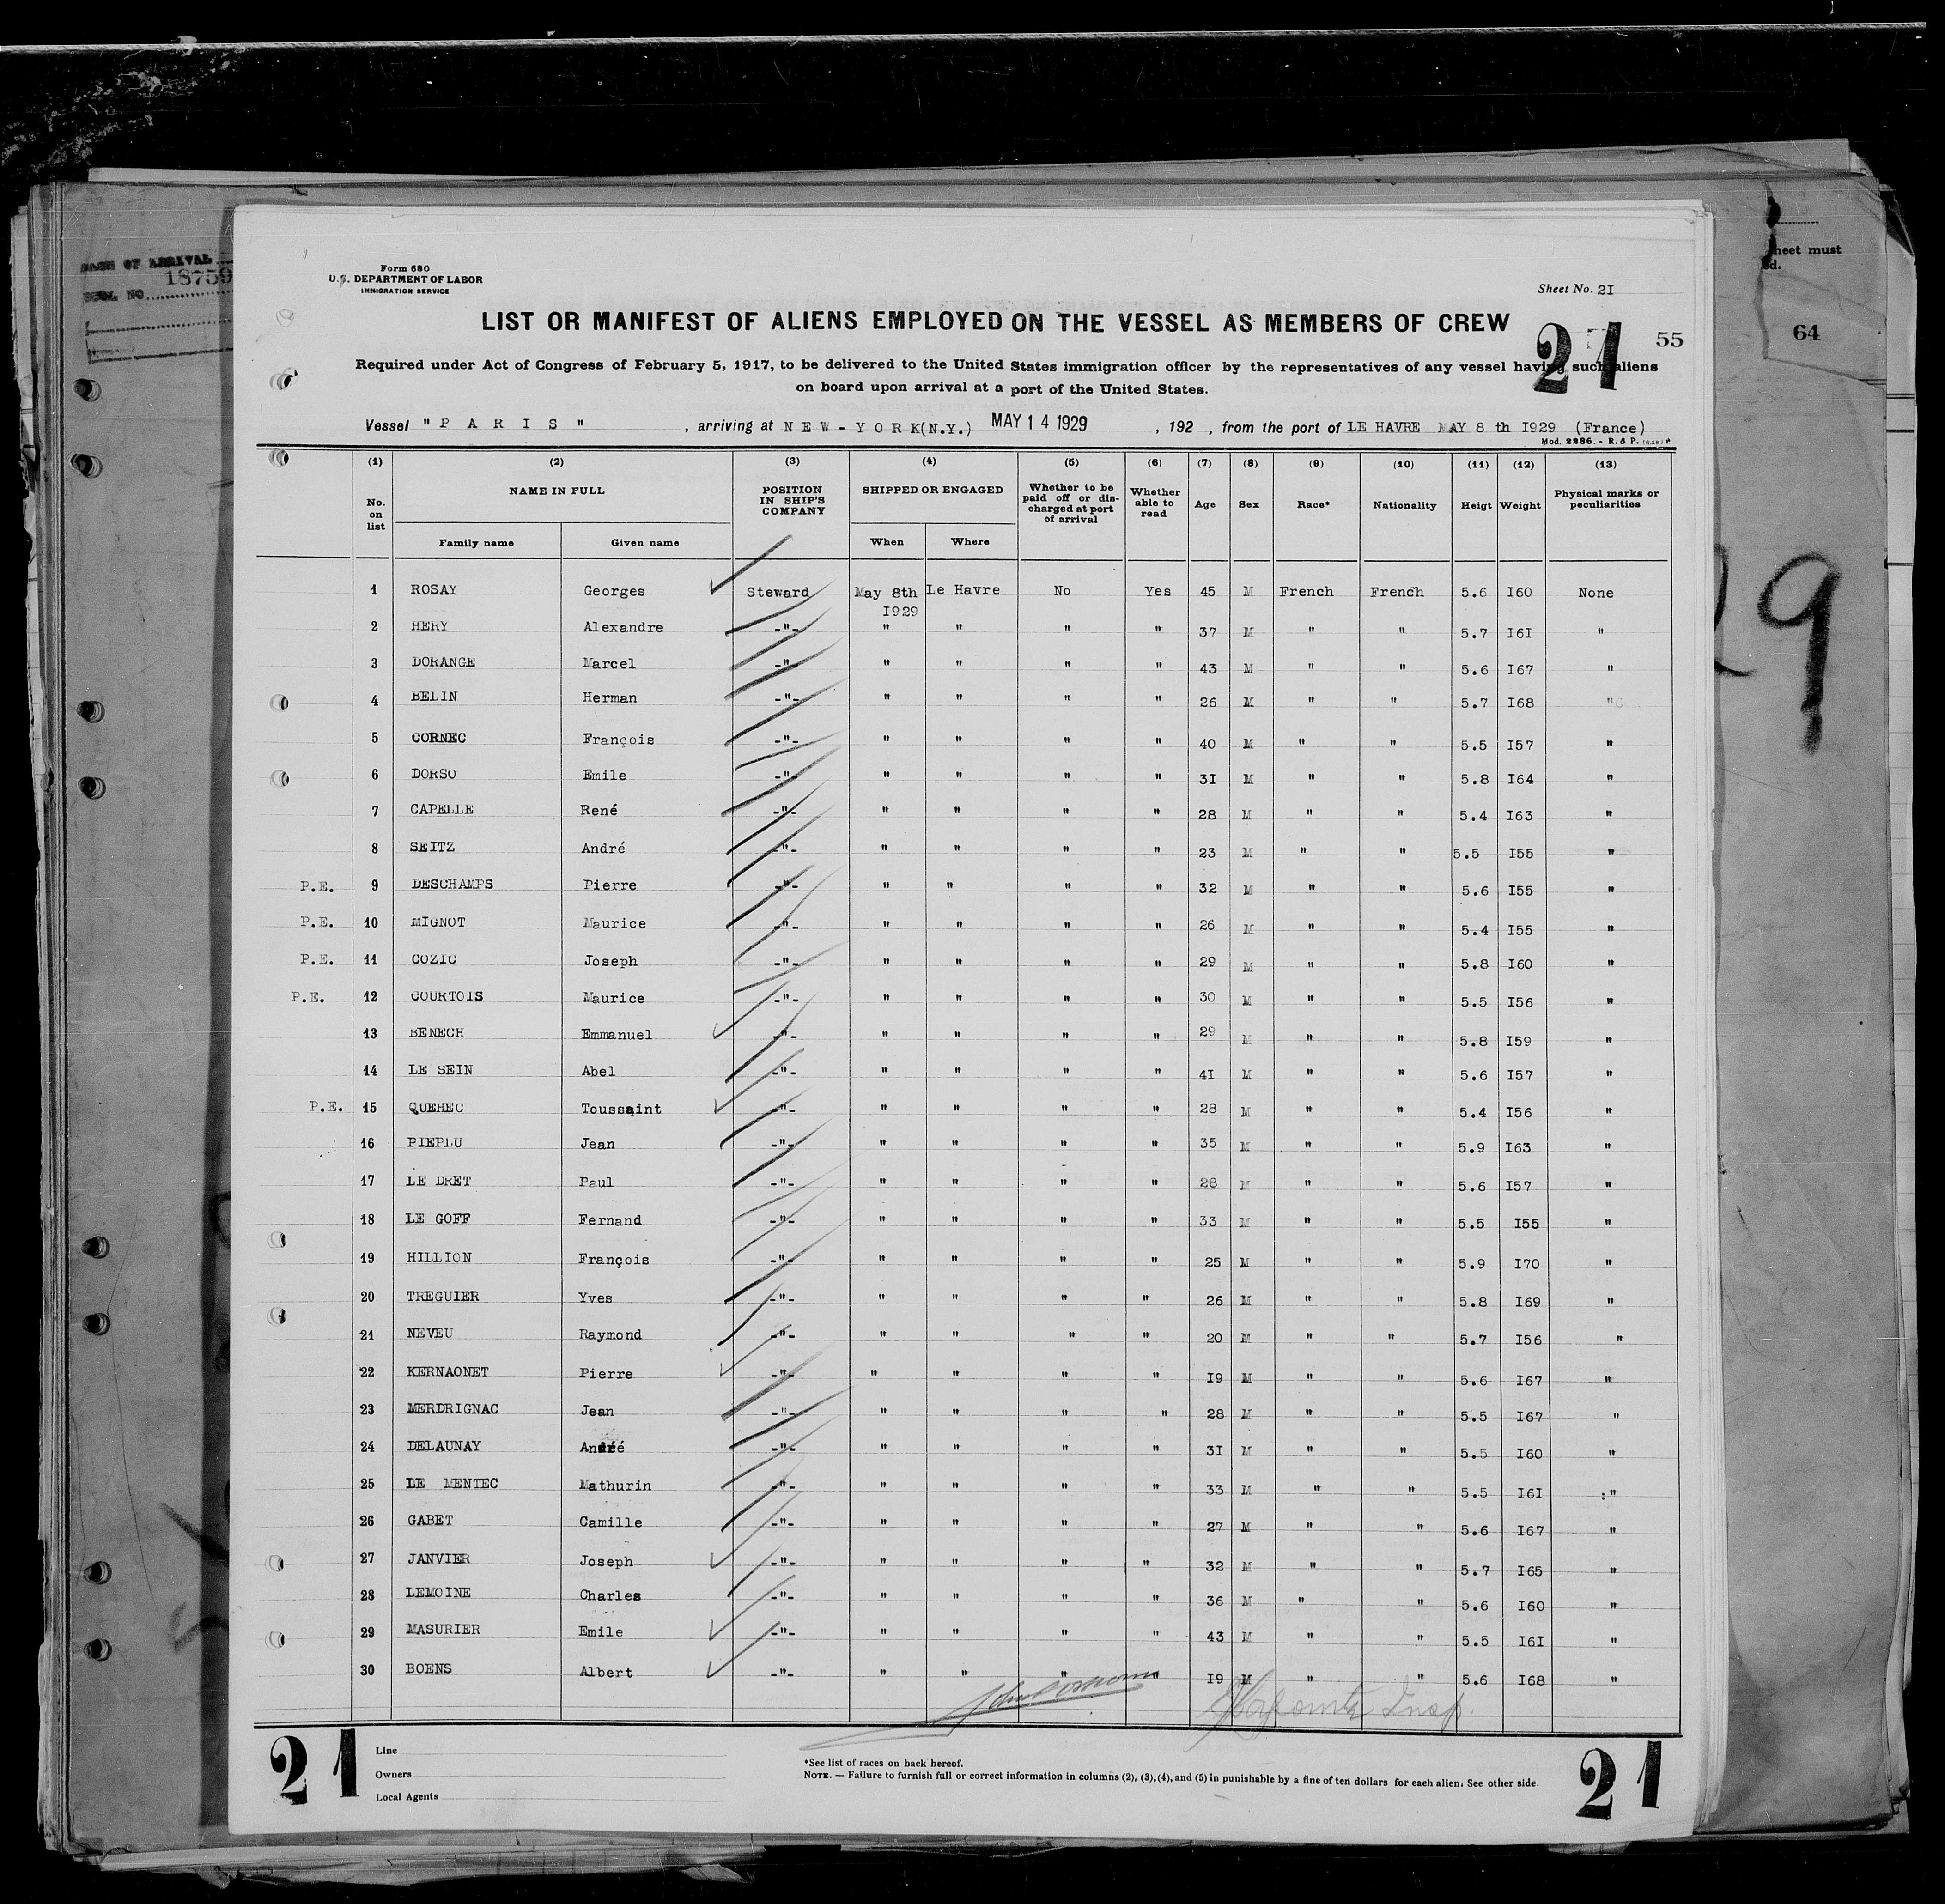 Form 680
U.S. DEPARTMENT OF LABOR
IMMIGRATION SERVICE
Sheet No. 2I
LIST OR MANIFEST OF ALIENS EMPLOYED ON THE VESSEL AS MEMBERS OF CREW
21
55
64
Required under Act of Congress of February 5, 1917, to be delivered to the United States immigration officer by the representatives of any vessel having such aliens
on board upon arrival at a port of the United States.
Vessel " P A R I S " , arriving at N E W - Y O R K(N.Y.) MAY 1 4 1929 , 192 , from the port of LE HAVRE MAY 8 th I929 (France)
Mod. 2286. - R. & P.
(1) (2) (3) (4) (5) (6) (7) (8) (9) (10) (11) (12) (13)
No. on list NAME IN FULL POSITION IN SHIP'S COMPANY SHIPPED OR ENGAGED Whether to be paid off or discharged at port of arrival Whether able to read Age Sex Race* Nationality Heigt Weight Physical marks or peculiarities
Family name Given name When Where
1 ROSAY Georges Steward May 8th I929 Le Havre No Yes 45 M French French 5.6 I60 None
2 HERY Alexandre -"- " " " " 37 M " " 5.7 I6I "
3 DORANGE Marcel -"- " " " " 43 M " " 5.6 I67 "
4 BELIN Herman -"- " " " " 26 M " " 5.7 I68 "
5 CORNEC François -"- " " " " 40 M " " 5.5 I57 "
6 DORSO Emile -"- " " " " 3I M " " 5.8 I64 "
7 CAPELLE René -"- " " " " 28 M " " 5.4 I63 "
8 SEITZ André -"- " " " " 23 M " " 5.5 I55 "
P.E. 9 DESCHAMPS Pierre -"- " " " " 32 M " " 5.6 I55 "
P.E. 10 MIGNOT Maurice -"- " " " " 26 M " " 5.4 I55 "
P.E. 11 COZIC Joseph -"- " " " " 29 M " " 5.8 I60 "
P.E. 12 COURTOIS Maurice -"- " " " " 30 M " " 5.5 I56 "
13 BENECH Emmanuel -"- " " " " 29 M " " 5.8 I59 "
14 LE SEIN Abel -"- " " " " 4I M " " 5.6 I57 "
P.E. 15 QUEHEC Toussaint -"- " " " " 28 M " " 5.4 I56 "
16 PIEPLU Jean -"- " " " " 35 M " " 5.9 I63 "
17 LE DRET Paul -"- " " " " 28 M " " 5.6 I57 "
18 LE GOFF Fernand -"- " " " " 33 M " " 5.5 I55 "
19 HILLION François -"- " " " " 25 M " " 5.9 I70 "
20 TREGUIER Yves -"- " " " " 26 M " " 5.8 I69 "
21 NEVEU Raymond -"- " " " " 20 M " " 5.7 I56 "
22 KERNAONET Pierre -"- " " " " I9 M " " 5.6 I67 "
23 MERDRIGNAC Jean -"- " " " " 28 M " " 5.5 I67 "
24 DELAUNAY André -"- " " " " 3I M " " 5.5 I60 "
25 LE MENTEC Mathurin -"- " " " " 33 M " " 5.5 I6I :"
26 GABET Camille -"- " " " " 27 M " " 5.6 I67 "
27 JANVIER Joseph -"- " " " " 32 M " " 5.7 I65 "
28 LEMOINE Charles -"- " " " " 36 M " " 5.6 I60 "
29 MASURIER Emile -"- " " " " 43 M " " 5.5 I6I "
30 BOENS Albert -"- " " " " I9 M " " 5.6 I68 "
Insp.
21
Line
Owners
Local Agents
*See list of races on back hereof.
NOTE. — Failure to furnish full or correct information in columns (2), (3), (4), and (5) in punishable by a fine of ten dollars for each alien. See other side.
21
OF ARRIVAL
18759
NO
sheet must
ed.
9